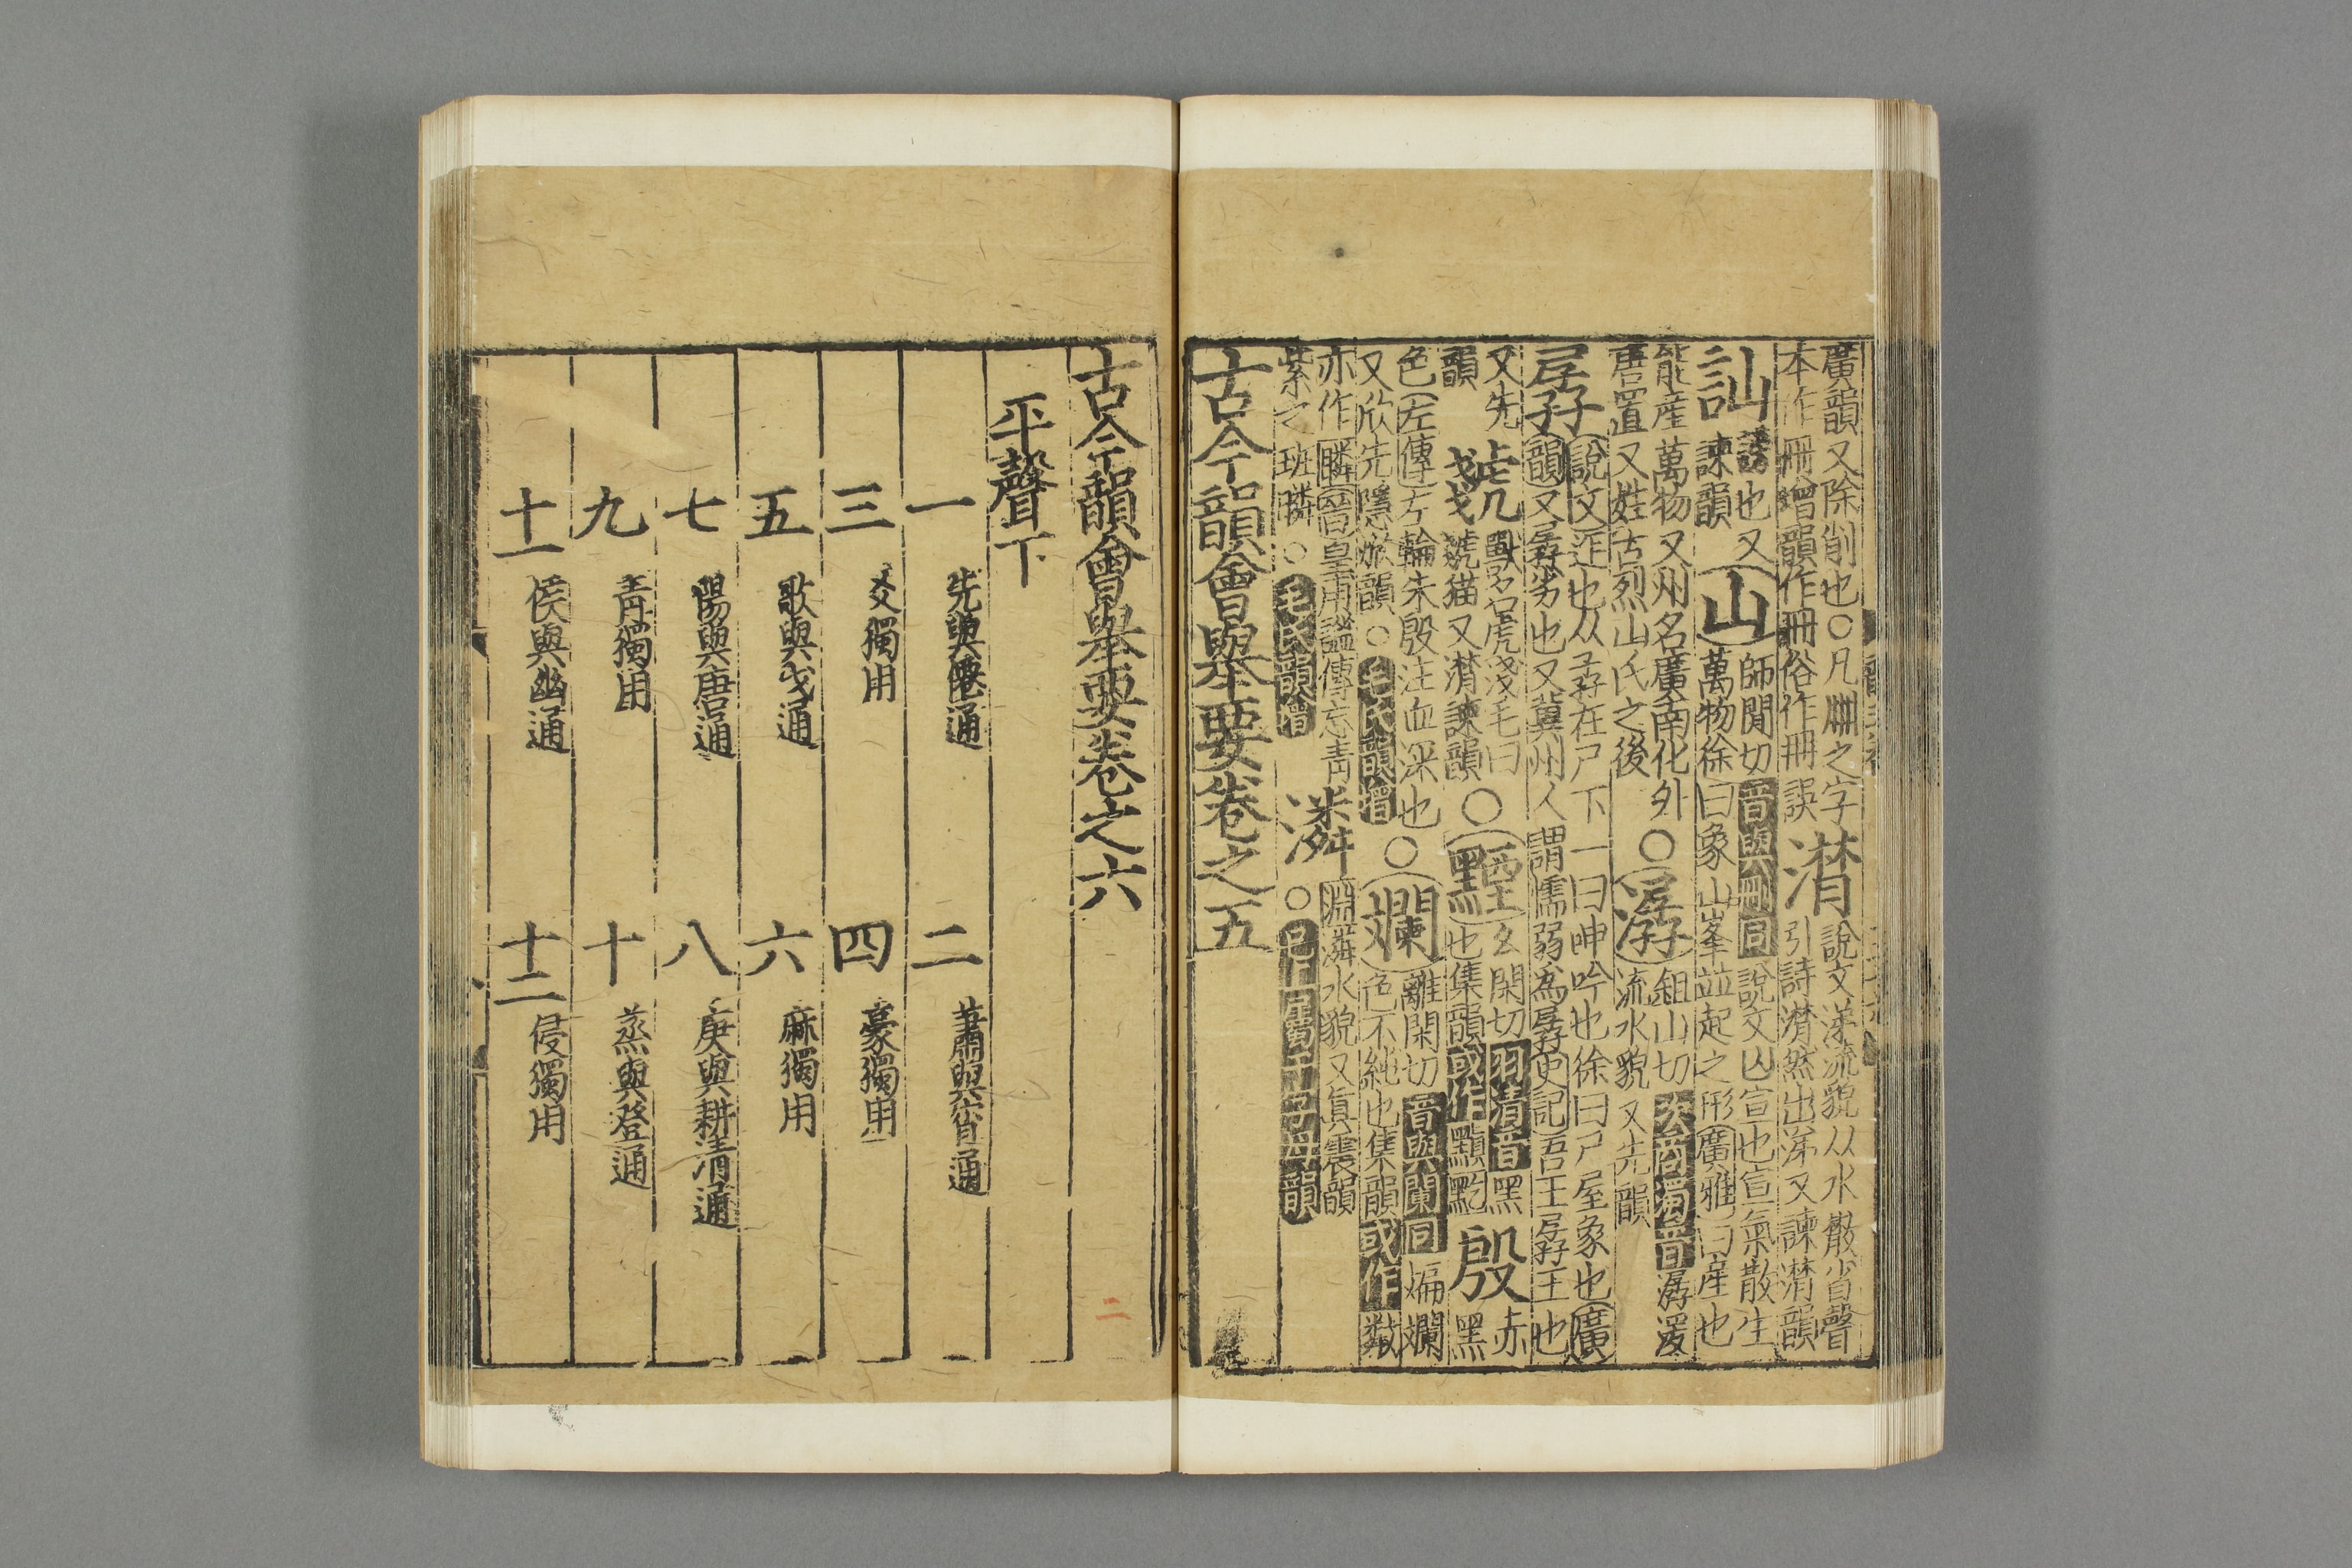 廣韻又除削也○凡刪之字
本作冊增韻作冊俗作冊誤
潸
說文涕流貌从水散省聲
引詩潸然出涕又諫潸韻
訕
謗也又
諫韻
山
師閒切音與刪同說文山宣也宣氣散生
萬物徐曰象山峯並起之形廣雅曰産也
能産萬物又州名廣南化外
唐置又姓古烈山氏之後
○潺
鉏山切次商濁音潺湲
流水貌又先韻
孱
說文迮也从孨在尸下一曰呻吟也徐曰尸屋象也廣
韻又孱劣也又冀州人謂懦弱爲孱史記吾王孱王也
又先
韻
虥
獸名虎淺毛曰
虥猫又潸諫韻
○黫
幺閑切羽清音黑
也集韻或作黰黫
殷
赤黑
色左傳左輪朱殷注血深也
又欣先隱焮韻○毛氏韻增
○斕
離閑切音與闌同斒斕
色不純也集韻或作斕
亦作㒹晉皇甫謐傳忘青
紫之班㒹○毛氏韻增
潾
淵潾水貌又眞震韻
○已上屬干字母韻
古今韻會舉要卷之五
古今韻會舉要卷之六
平聲下
一 先與僊通 二 蕭與宵通
三 爻獨用 四 豪獨用
五 歌與戈通 六 麻獨用
七 陽與唐通 八 庚與耕清通
九 青獨用 十 蒸與登通
十一 侯與幽通 十二 侵獨用
二